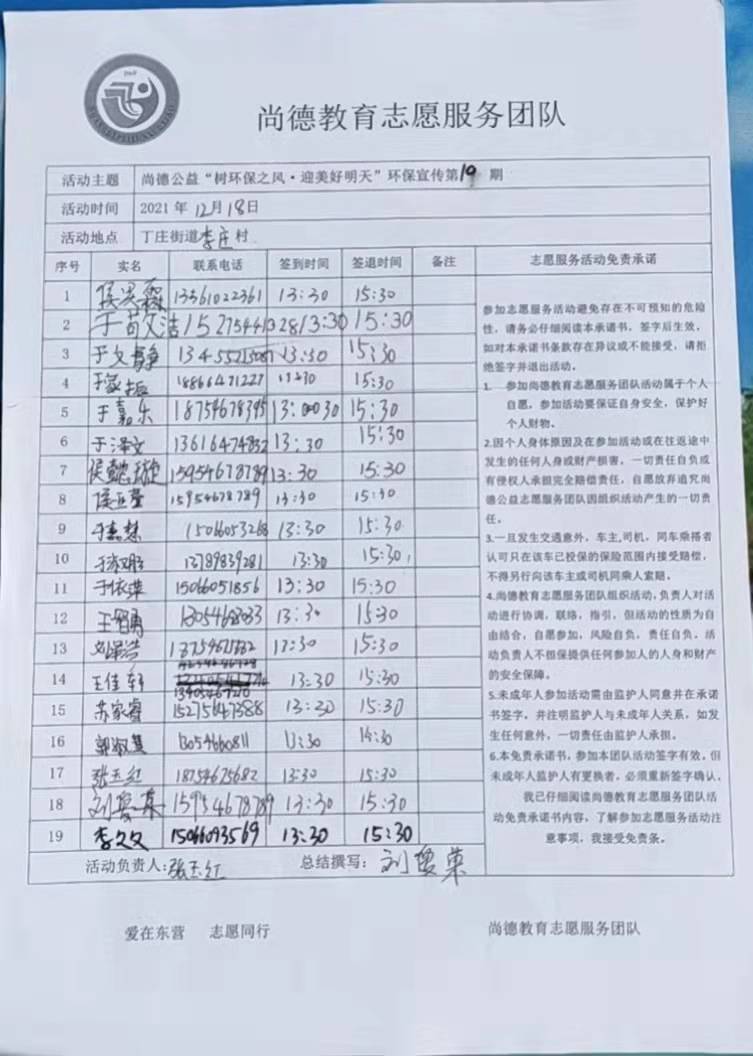 尚德教育志愿服务团队
活动主题 尚德公益“树环保之风·迎美好明天”环保宣传第19期
活动时间 2021年12月18日
活动地点 丁庄街道李庄村
序号 实名 联系电话 签到时间 签退时间 备注 志愿服务活动免责承诺
1 13561022361 13:30 15:30
2 13:30 15:30
3 于文静 13:30 15:30
4 18866471227 15:30
5 于嘉乐 18754678395 15:30
6 于泽文 13616474832 13:30 15:30
7 侯懿璇 15954678789 13:30 15:30
8 15954678789 13:30 15:30
9 于嘉慧 15066053268 13:30 15:30
10 13789839281 13:30 15:30
11 于依萍 15066051856 13:30 15:30
12 13:30 15:30
13 15:30
14 王佳轩 13:30 15:30
15 苏家睿 15275647388 15:30
16 13054660811 14:30
17 张玉红 18754675682 13:30 15:30
18 15954678789 13:30 15:30
19 李文文 15066093569 13:30 15:30
活动负责人:张玉红 总结撰写:
参加志愿服务活动避免存在不可预知的危险
性，请务必仔细阅读本承诺书，签字后生效，
如对本承诺书条款存在异议或不能接受，请拒
绝签字并退出活动。
1. 参加尚德教育志愿服务团队活动属于个人
自愿，参加活动要保证自身安全，保护好
个人财物。
2.因个人身体原因及在参加活动或在往返途中
发生的任何人身或财产损害，一切责任自负或
有侵权人承担完全赔偿责任，自愿放弃追究尚
德公益志愿服务团队因组织活动产生的一切责
任。
3.一旦发生交通意外，车主,司机，同车乘搭者
认可只在该车已投保的保险范围内接受赔偿，
不得另行向该车主或司机同乘人索赔。
4.尚德教育志愿服务团队组织活动,负责人对活
动进行协调，联络，指引，但活动的性质为自
由结合，自愿参加，风险自负，责任自负，活
动负责人不担保提供任何参加人的人身和财产
的安全保障。
5.未成年人参加活动需由监护人同意并在承诺
书签字，并注明监护人与未成年人关系，如发
生任何意外，一切责任由监护人承担。
6.本免责承诺书，参加本团队活动签字有效，但
未成年人监护人有更换者，必须重新签字确认。
我已仔细阅读尚德教育志愿服务团队活
动免责承诺书内容，了解参加志愿服务活动注
意事项，我接受免责条。
爱在东营 志愿同行 尚德教育志愿服务团队